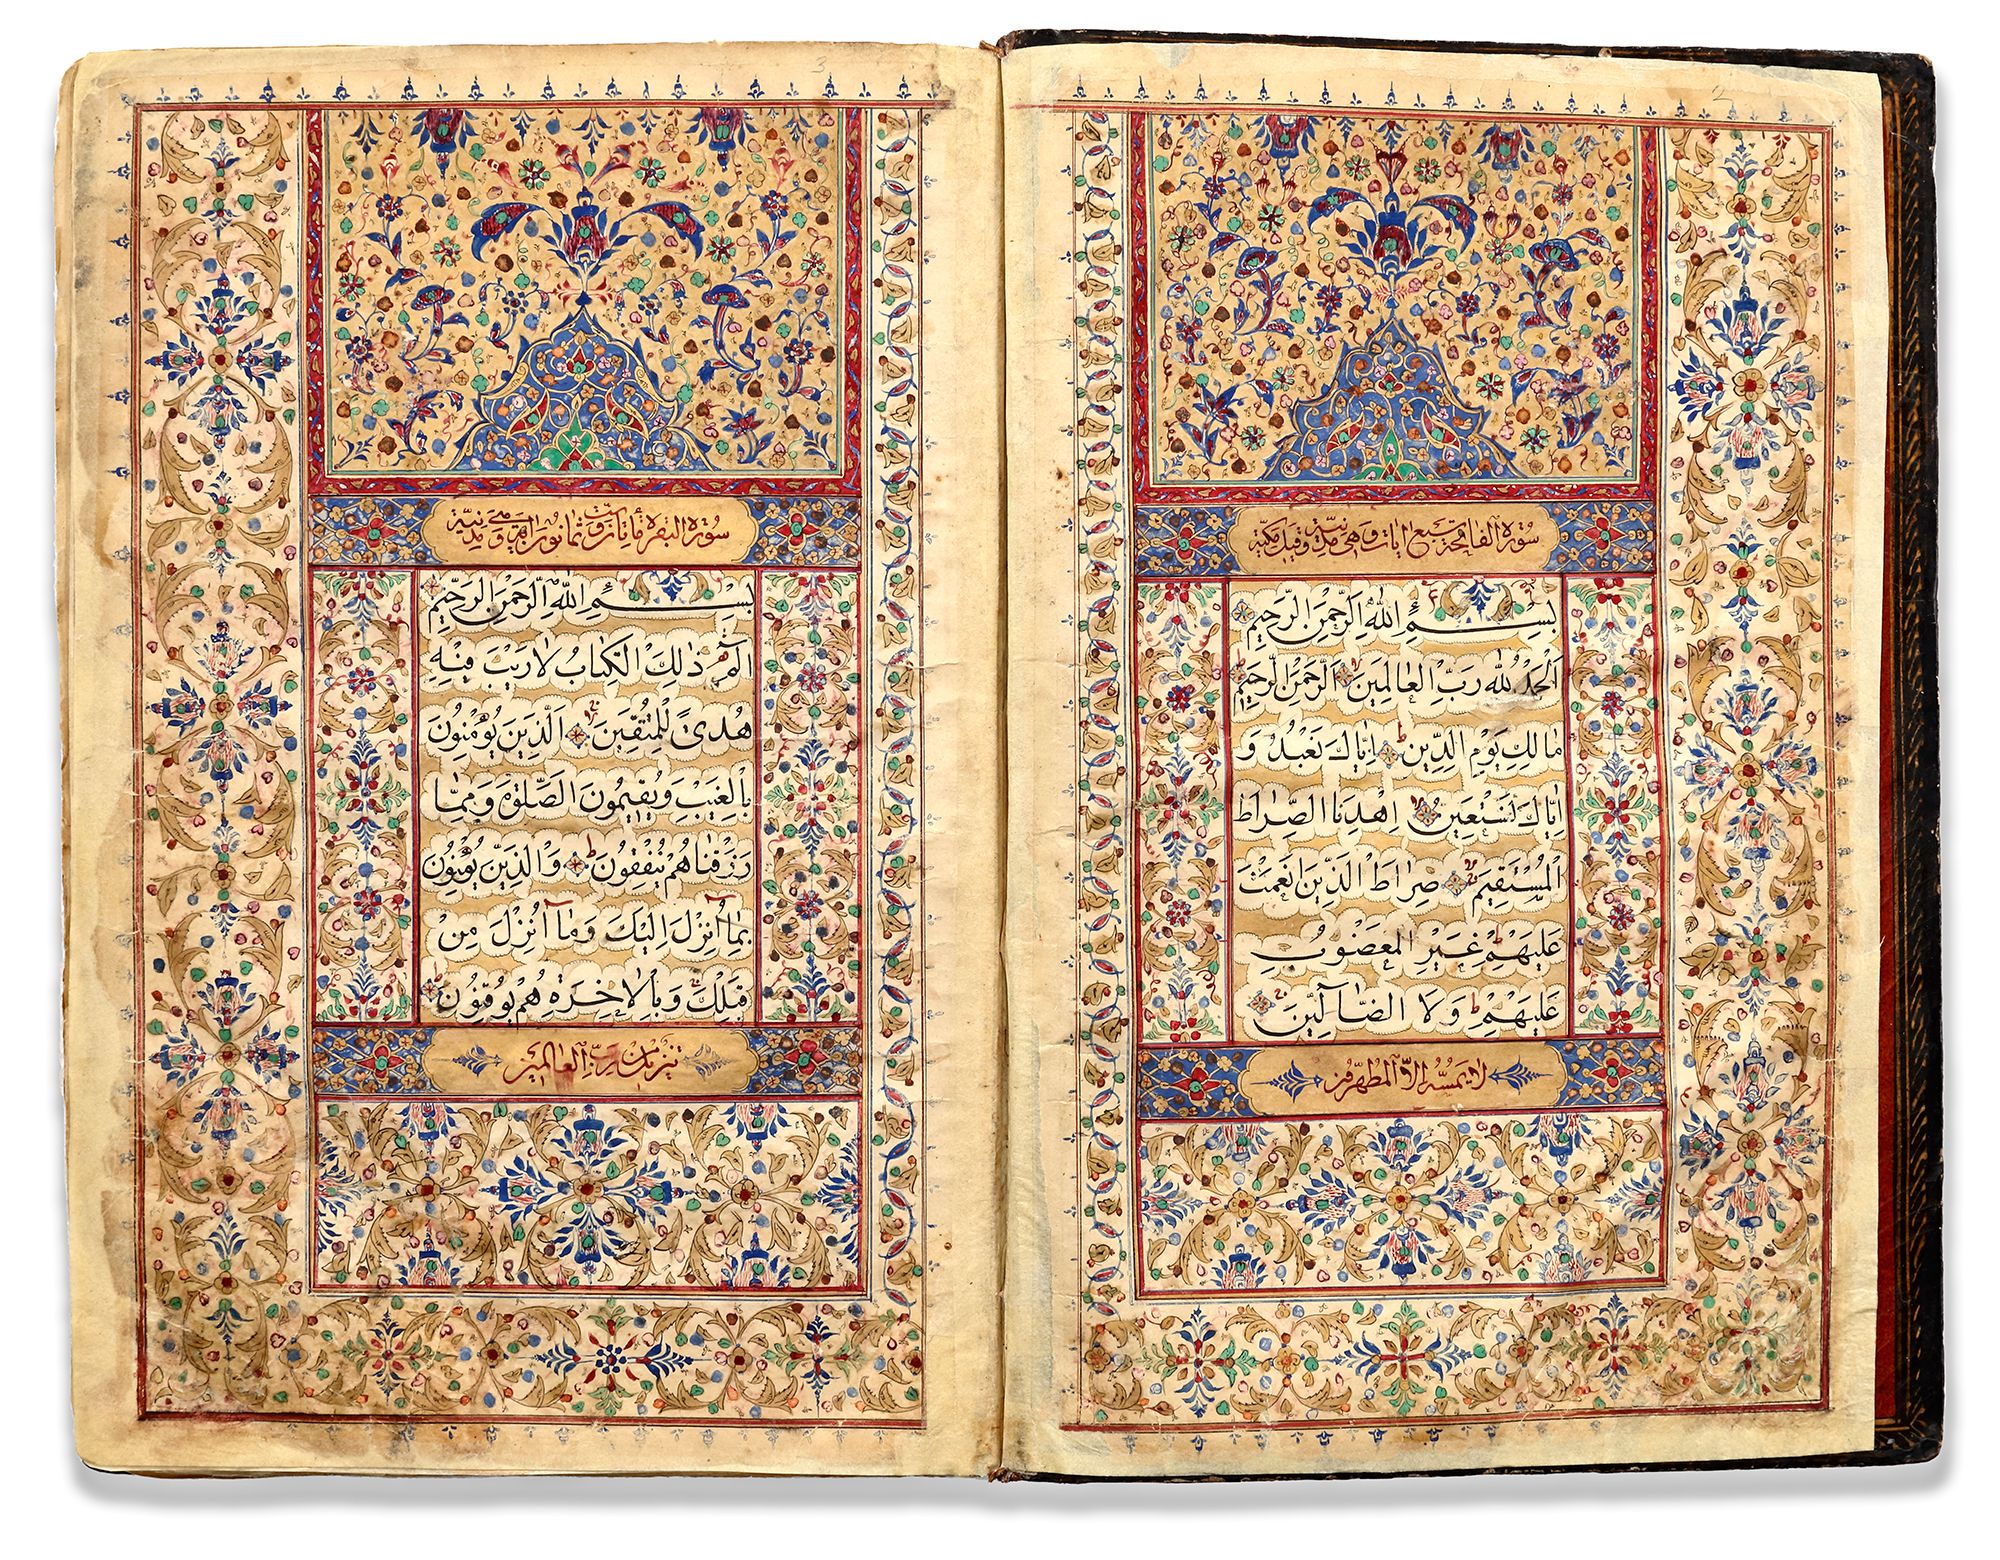 سورة الفاتحة سبع ايات وهي مدنية وقيل مكية
بِسْمِ اللهِ الرَّحْمٰنِ الرَّحِيمِ
اَلْحَمْدُ لِلّٰهِ رَبِّ الْعَالَمِينَ الرَّحْمٰنِ الرَّحِيمِ
مَالِكِ يَوْمِ الدِّينِ اِيَّاكَ نَعْبُدُ وَ
اِيَّاكَ نَسْتَعِينُ اِهْدِنَا الصِّرَاطَ
الْمُسْتَقِيمَ صِرَاطَ الَّذِينَ اَنْعَمْتَ
عَلَيْهِمْ غَيْرِ الْمَغْضُوبِ
عَلَيْهِمْ وَلَا الضَّالِّينَ
لا يمسه الا المطهرون
سورة البقرة مائتان وست وثمانون اية وهي مدنية
بِسْمِ اللهِ الرَّحْمٰنِ الرَّحِيمِ
الٓمٓ ذٰلِكَ الْكِتَابُ لَا رَيْبَ فِيهِ
هُدًى لِلْمُتَّقِينَ اَلَّذِينَ يُؤْمِنُونَ
بِالْغَيْبِ وَيُقِيمُونَ الصَّلٰوةَ وَمِمَّا
رَزَقْنَاهُمْ يُنْفِقُونَ وَالَّذِينَ يُؤْمِنُونَ
بِمَا اُنْزِلَ اِلَيْكَ وَمَا اُنْزِلَ مِنْ
قَبْلِكَ وَبِالْاٰخِرَةِ هُمْ يُوقِنُونَ
تنزيل من رب العالمين